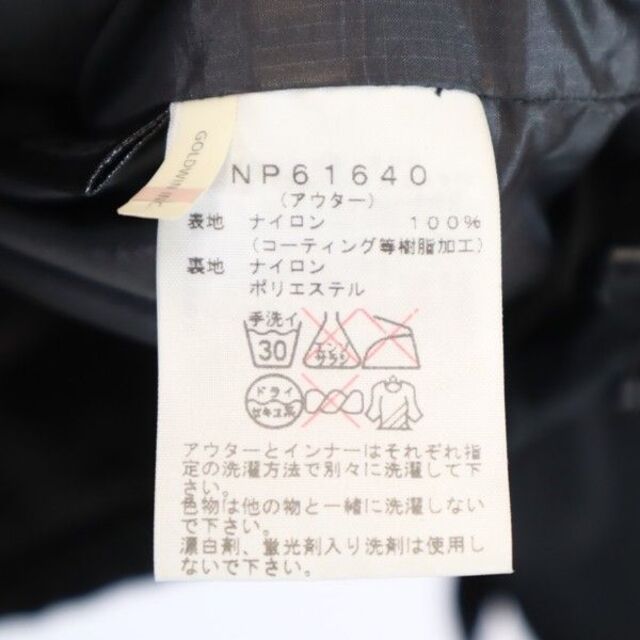 GOLDWIN INC
NP61640
(アウター)
表地 ナイロン 100%
(コーティング等樹脂加工)
裏地 ナイロン
ポリエステル
手洗イ
30
エンソ
サラシ
ドライ
セキユ系
アウターとインナーはそれぞれ指
定の洗濯方法で別々に洗濯して下
さい。
色物は他の物と一緒に洗濯しない
で下さい。
漂白剤、蛍光剤入り洗剤は使用し
ないで下さい。